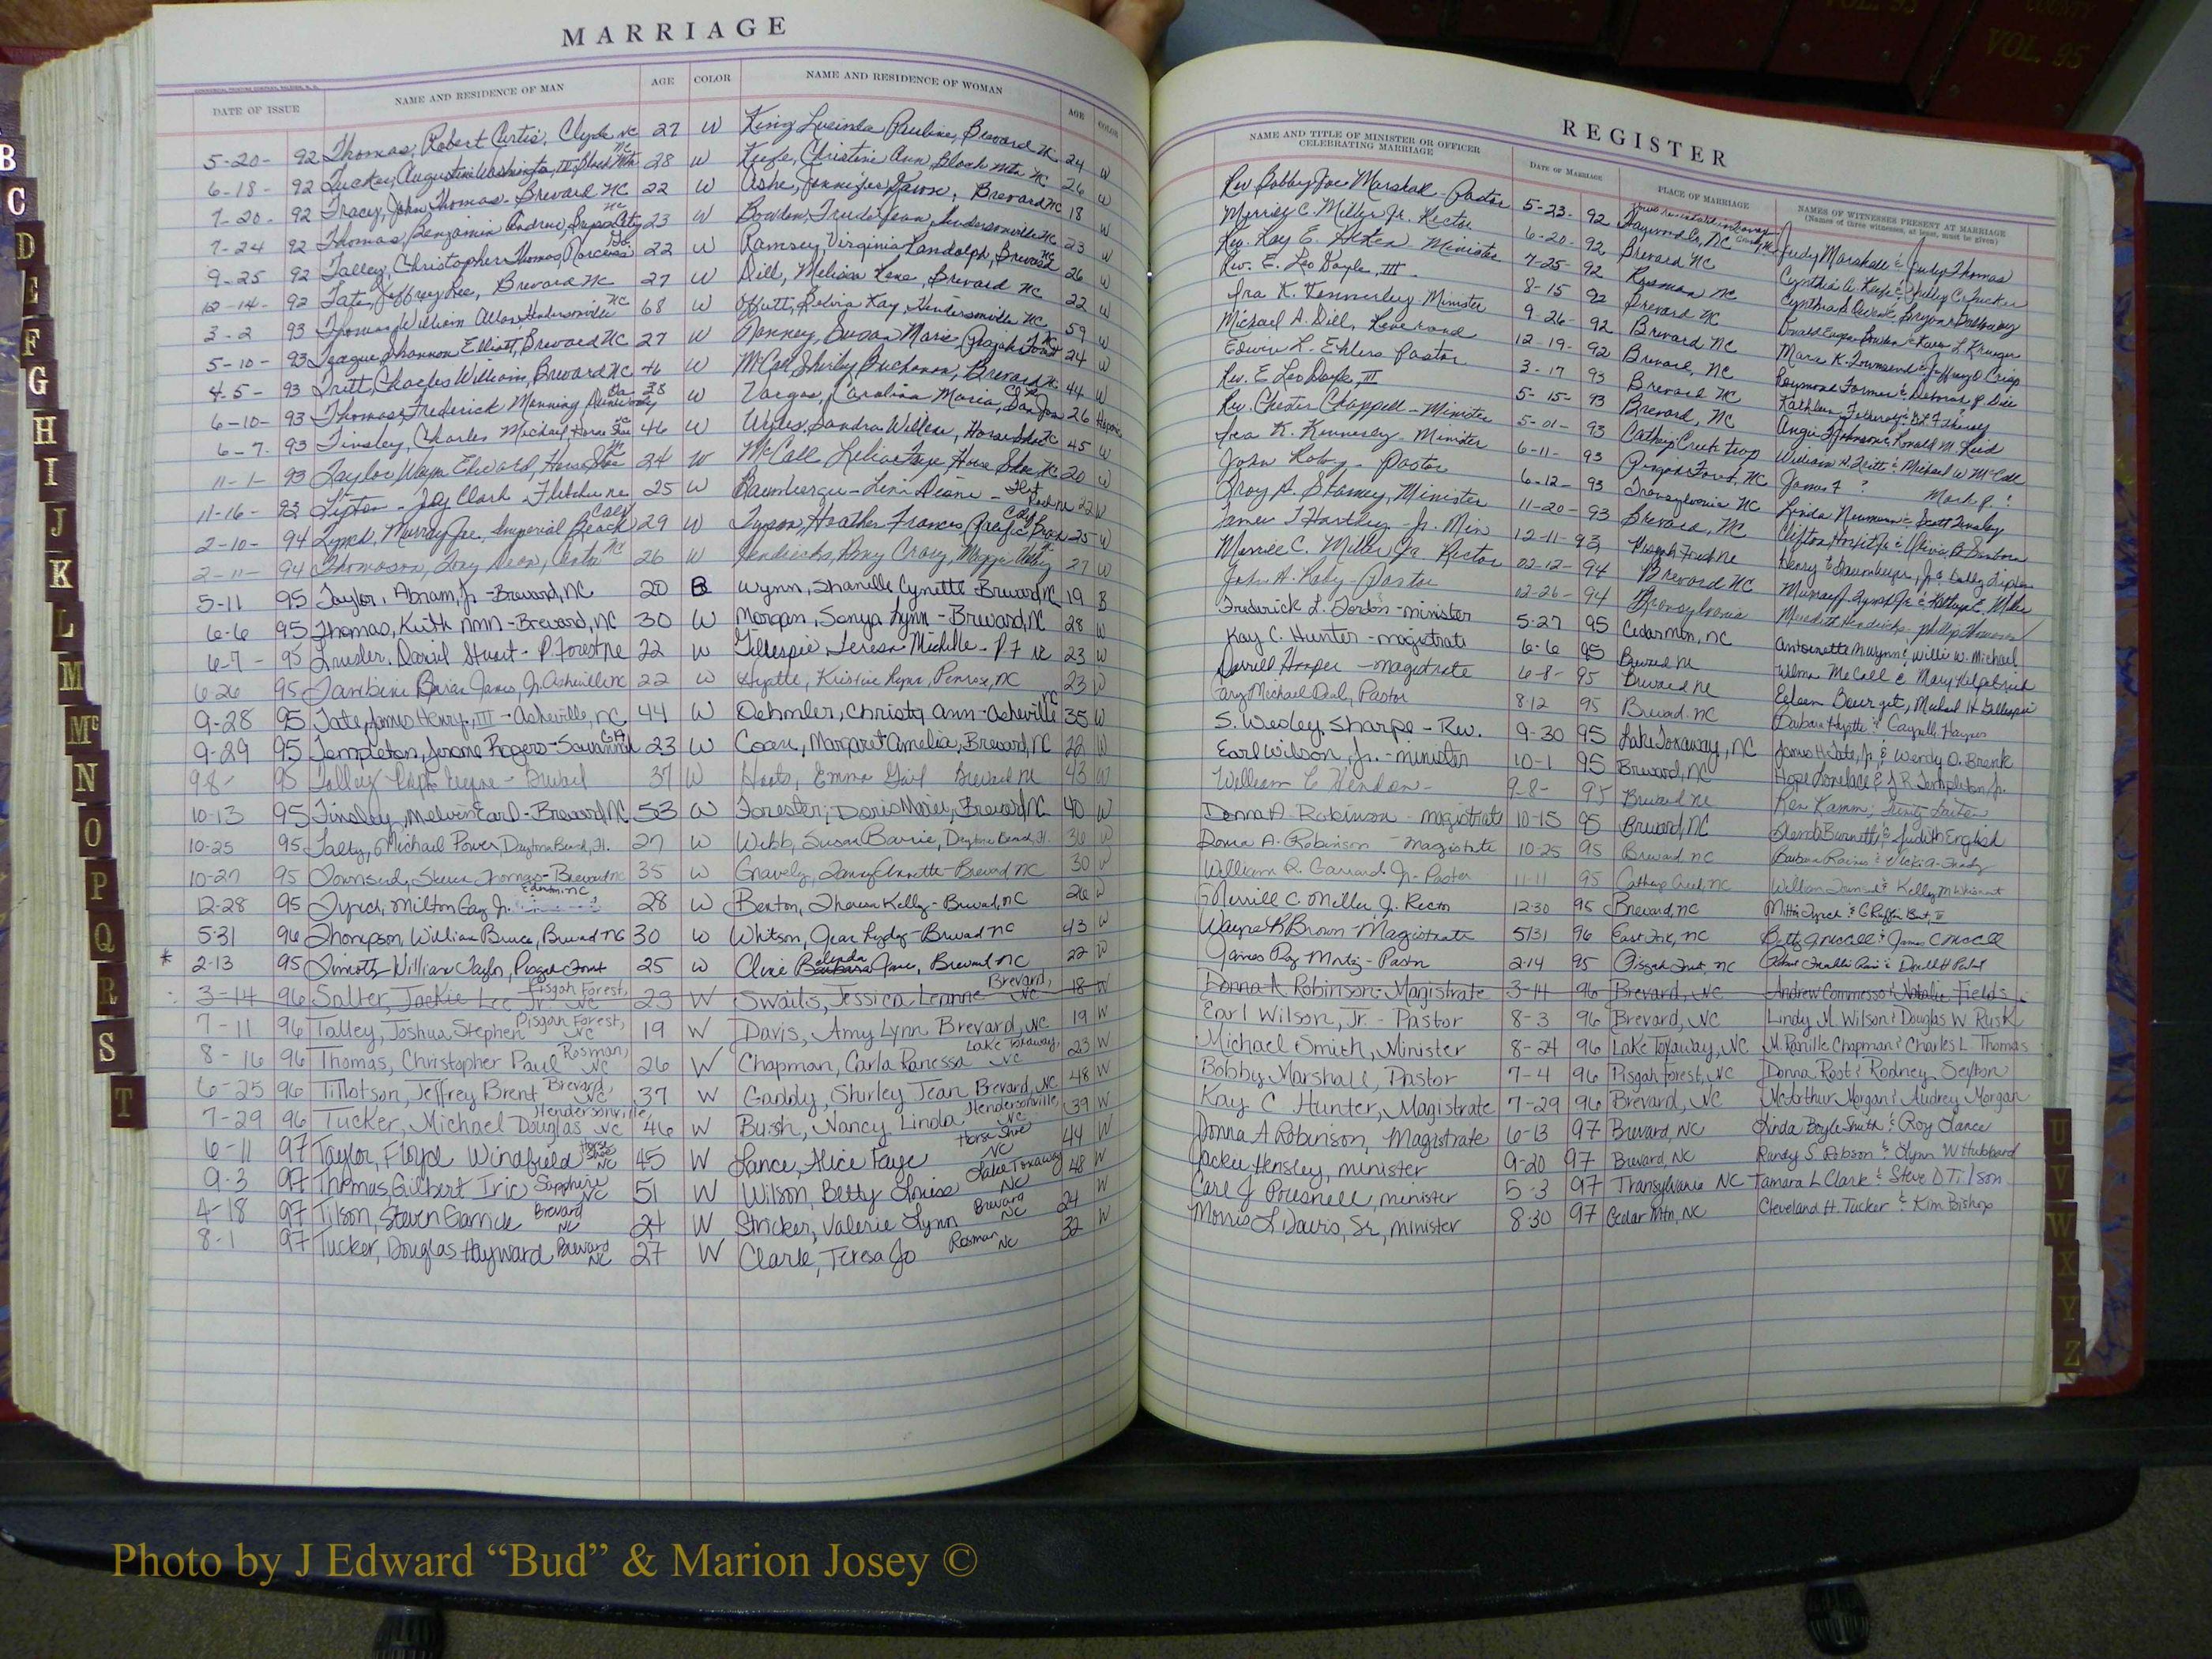 MARRIAGE
DATE OF ISSUE NAME AND RESIDENCE OF MAN AGE COLOR NAME AND RESIDENCE OF WOMAN AGE COLOR
5-20- 92 Thomas, Robert Curtis, Clyde NC 27 W King Lucinda Pauline, Brevard NC 24 W
6-18- 92 Tucker, Augustine Washington, III, Black Mtn. NC 28 W Keefe, Christine Ann, Black Mtn NC 26 W
7-20- 92 Tracy, John Thomas- Brevard NC 22 W Ashe, Jennifer Dawn, Brevard NC 18 W
7-24 92 Thomas, Benjamin Andrew, Bryson City NC 23 W Bowden, Trudi Jean, Hendersonville NC 23 W
9-25 92 Talley, Christopher Thomas, 22 W Ramsey, Virginia Randolph, Brevard NC 26 W
12-14- 92 Tate, Jeffrey Lee, Brevard NC 27 W Dill, Melissa Brevard NC 22 W
3-2 93 Thomas, William Allan, Hendersonville NC 68 W Kay, Hendersonville NC 59 W
5-10- 93 Teague, Shannon Elliott, Brevard NC 27 W Susan Marie, Pisgah Forest NC 24 W
4-5- 93 Tritt, Charles William, Brevard NC 46 W McCall Shirley Buchanan, Brevard NC 44 W
6-10- 93 Thomas, Frederick Manning Ga. 38 W Vargas, Carolina Maria, San Jose 26 Hispanic
6-7. 93 Tinsley, Charles Michael, Horse Shoe NC 46 W Sandra Willene, Horse Shoe NC 45 W
11-1- 93 Taylor, Wayne Edward, Horse Shoe NC 24 W McCall, Faye, Horse Shoe, NC 20 W
11-16- 93 Tipton - Jay Clark, Fletcher NC 25 W Diane - Flat Rock NC 22 W
2-10- 94 Lynch, Murray Joe, Imperial Beach Calif 29 W Tyson, Heather Frances, Calif 25 W
2-11- 94 Thomason, Tony Dean, NC 26 W Hendricks, Amy Craig, 27 W
5-11 95 Taylor, Abram, Jr - Brevard, NC 20 B Wynn, Shanelle Cynette - Brevard NC 19 B
6-6 95 Thomas, Keith NMN - Brevard, NC 30 W Morgan, Sonya Lynn - Brevard, NC 28 W
6-7- 95 Daniel Stuart - P. Forest NC 22 W Gillespie Teresa Michelle - P F NC 23 W
6-26 95 Brian James, Jr. Asheville NC 22 W Hyatte, Kristine Penrose, NC 23 W
9-28 95 Tate, James Henry, III - Asheville, NC 44 W Oehmler, Christy Ann - Asheville NC 35 W
9-29 95 Templeton, Jerome Rogers - Savannah GA 23 W Coan, Margaret Amelia, Brevard, NC 22 W
9-8- 95 Talley Ralph - Brevard 37 W Emma Gail Brevard NC 43 W
10-13 95 Tinsley, Melvin Earl - Brevard, NC 53 W Forester, Doris Marie, Brevard, NC 40 W
10-25 95 Michael Power, Daytona Beach, Fl. 27 W Webb, Susan Barrie, Daytona Beach, Fl. 36 W
10-27 95 Townsend, Steven Thomas - Brevard NC 35 W Gravely, Annette - Brevard NC 30 W
12-28 95 Milton Gay Jr. Edenton, NC 28 W Benton, Theresa Kelly - Brevard, NC 26 W
5-31 96 Thompson, William Bruce, Brevard NC 30 W Whitson, Jean - Brevard NC 43 W
* 2-13 95 Timothy William Taylor, Pisgah Forest 25 W Cline Barbara Belinda Jane, Brevard NC 22 W
3-14 96 Salter, Jackie Lee Jr. Pisgah Forest, NC 23 W Swails, Jessica Leanne Brevard, NC 18 W
7-11 96 Talley, Joshua Stephen Pisgah Forest, NC 19 W Davis, Amy Lynn Brevard, NC 19 W
8-16 96 Thomas, Christopher Paul Rosman, NC 26 W Chapman, Carla Ranessa Lake Toxaway, NC 23 W
6-25 96 Tillotson, Jeffrey Brent Brevard, NC 37 W Gaddy, Shirley Jean Brevard, NC 48 W
7-29 96 Tucker, Michael Douglas Hendersonville, NC 46 W Bush, Nancy Linda Hendersonville, NC 39 W
6-11 97 Taylor, Floyd Windfield Horse Shoe NC 45 W Lance, Alice Faye Horse Shoe NC 44 W
9-3 97 Thomas, Gilbert Iric Sapphire NC 51 W Wilson, Betty Louise Lake Toxaway NC 48 W
4-18 97 Tilson, Steven Garrick Brevard NC 24 W Stricker, Valerie Lynn Brevard NC 24 W
8-1 97 Tucker, Douglas Hayward Brevard NC 27 W Clark, Teresa Jo Rosman NC 32 W
REGISTER
NAME AND TITLE OF MINISTER OR OFFICER CELEBRATING MARRIAGE DATE OF MARRIAGE PLACE OF MARRIAGE NAMES OF WITNESSES PRESENT AT MARRIAGE
(Names of three witnesses, at least, must be given)
Rev Bobby Joe Marshall - Pastor 5-23- 92 Haywood Co, NC Judy Marshall & Judy Thomas
Merrill C. Miller Jr. Rector 6-20- 92 Brevard NC Cynthia A. Keefe & Tucker
Rev. Ray E. Minister 7-25- 92 Rosman NC
Rev. E. Leo Doyle, III. 8-15 92 Brevard NC
Ira K. Kennerley Minister 9-26- 92 Brevard NC Mara K. Townsend
Michael A. Dill, Reverend 12-19- 92 Brevard, NC Raymond Farmer & Deborah P. Dill
Edwin L. Ehlers Pastor 3-17 93 Brevard NC Kathleen
Rev. E Leo Doyle, III 5-15- 93 Brevard, NC Angie Johnson & Ronald M. Reid
Rev. Chester Chappell - Minister 5-01- 93 Cathey Creek William H. Tritt & Michael W McCall
Ira K. Kennerley - Minister 6-11- 93 Pisgah Forest, NC James F ? Mark P. ?
John Raby - Pastor 6-12- 93 Transylvania NC Linda Neumann & Scott Tinsley
Roy A. Stamey, Minister 11-20- 93 Brevard, NC
James T Hartley - Jr. Min 12-11-93 Pisgah Forest NC
Merrill C. Miller Jr Rector 02-12- 94 Brevard NC
John A. Raby - Pastor 12-26- 94 Transylvania Meredith Hendricks - Phillip Thomason
Frederick L. Gordon - minister 5-27 95 Cedar Mtn, NC Antoinette M. Wynn & Willie W. Michael
Kay C. Hunter - magistrate 6-6 95 Brevard NC Wilma McCall & Mary Kilpatrick
Darrell Hooper - magistrate 6-8- 95 Brevard NC Eileen Bourget, Michael H Gillespie
Gary Michael Deal, Pastor 8-12 95 Brevard. NC Barbara Hyatte & Haynes
S. Wesley Sharpe - Rev. 9-30 95 Lake Toxaway, NC James H. Tate, Jr, & Wendy O. Brenk
Earl Wilson, Jr. - minister 10-1 95 Brevard, NC Hope Lovelace & J R Templeton, Jr.
William C Hendon - 9-8- 95 Brevard NC
Donna A Robinson - magistrate 10-15 95 Brevard, NC Glenda Burnette & Judith English
Donna A. Robinson - Magistrate 10-25 95 Brevard NC Barbara Raines &
William R. Garrard Jr - Pastor 11-11 95 Cathey Creek, NC
Merrill C. Miller Jr. Rector 12-30 95 Brevard, NC
Wayne R Brown - Magistrate 5/31 96 East Fork, NC Betty G McCall & James C McCall
James Roy - Pastor 2-14 95 Pisgah Forest, NC
Donna A Robinson - Magistrate 3-14 96 Brevard, NC Andrew Commesso & Natalie Fields
Earl Wilson, Jr. - Pastor 8-3 96 Brevard, NC Lindy M. Wilson & Douglas W Rusk
Michael Smith, Minister 8-24 96 Lake Toxaway, NC M. Ranille Chapman & Charles L Thomas
Bobby Marshall, Pastor 7-4 96 Pisgah Forest, NC Donna Root & Rodney Sexton
Kay C Hunter, Magistrate 7-29 96 Brevard, NC McArthur Morgan & Audrey Morgan
Donna A Robinson, Magistrate 6-13 97 Brevard, NC Linda Boyle Smith & Roy Lance
Jackie Hensley, minister 9-20 97 Brevard, NC Randy S Dobson & Lynn W Hubbard
Carl J Pousnell, minister 5-3 97 Transylvania NC Tamara L Clark & Steve D Tilson
Morris L Davis, Sr, minister 8-30 97 Cedar Mtn, NC Cleveland H. Tucker & Kim Bishop
B
C
D
E
F
G
H
I
J
K
L
M
Mc
N
O
P
Q
R
S
T
U
V
W
X
Y
Z
VOL. 95
COUNTY
VOL. 95
Photo by J Edward “Bud” & Marion Josey ©